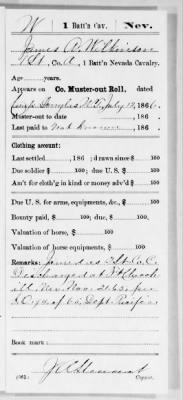 W | 1 Batt'n Cav. | Nev.
James A. Wilkinson
1 Lt., Co. A, 1 Batt'n Nevada Cavalry.
Age years.
Appears on Co. Muster-out Roll, dated
Camp Douglas U.T., July 12, 1866.
Muster-out to date , 186 .
Last paid to Not known , 186 .
Clothing account:
Last settled , 186 ; drawn since $ 100
Due soldier $ 100; due U. S. $ 100
Am't for cloth'g in kind or money adv'd $ 100
Due U. S. for arms, equipments, &c., $ 100
Bounty paid, $ 100; due, $ 100
Valuation of horse, $ 100
Valuation of horse equipments, $ 100
Remarks: 1st Lt. Co. C.
Discharged at Ft. Church-
ill Nev. Nov.
Book mark:
(361) Copyist.